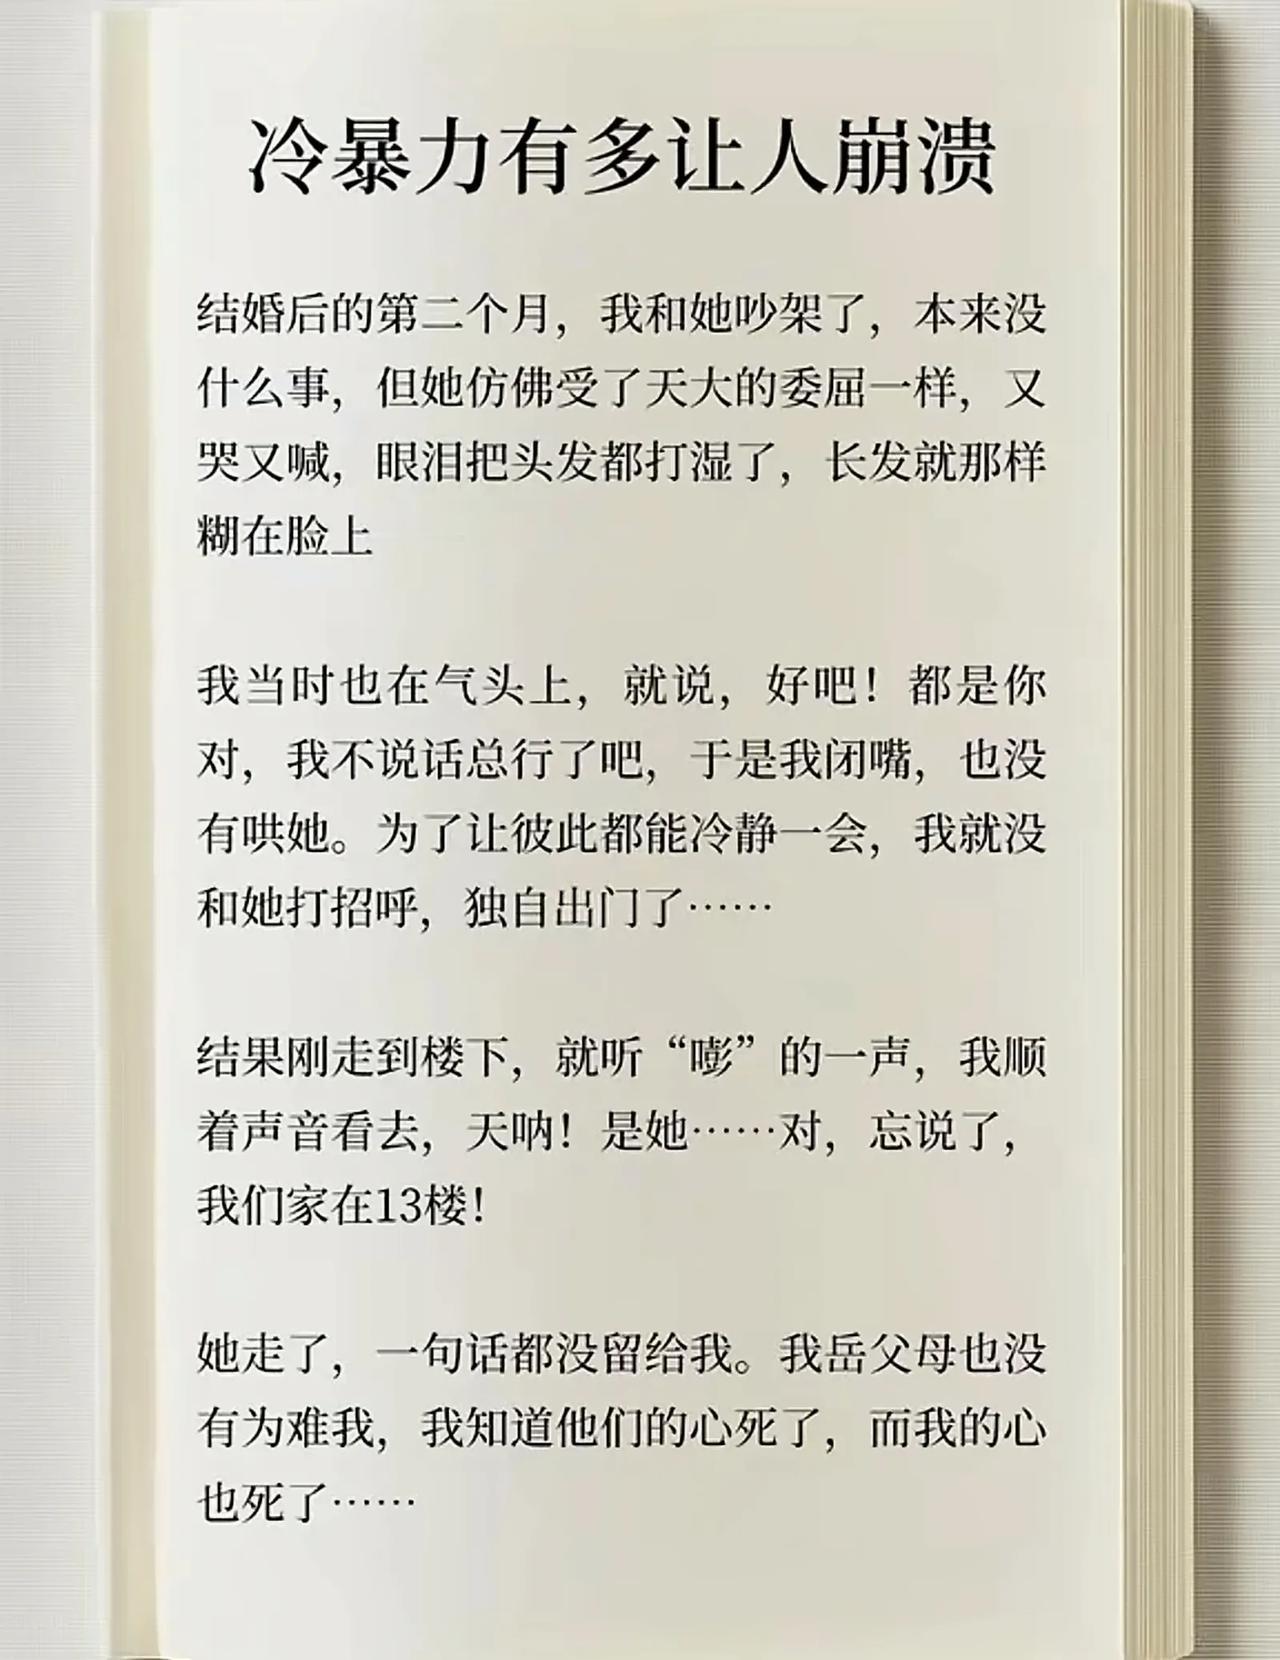 冷暴力有多让人崩溃
结婚后的第二个月，我和她吵架了，本来没
什么事，但她仿佛受了天大的委屈一样，又
哭又喊，眼泪把头发都打湿了，长发就那样
糊在脸上
我当时也在气头上，就说，好吧！都是你
对，我不说话总行了吧，于是我闭嘴，也没
有哄她。为了让彼此都能冷静一会，我就没
和她打招呼，独自出门了……
结果刚走到楼下，就听“嘭”的一声，我顺
着声音看去，天呐！是她……对，忘说了，
我们家在13楼！
她走了，一句话都没留给我。我岳父母也没
有为难我，我知道他们的心死了，而我的心
也死了……